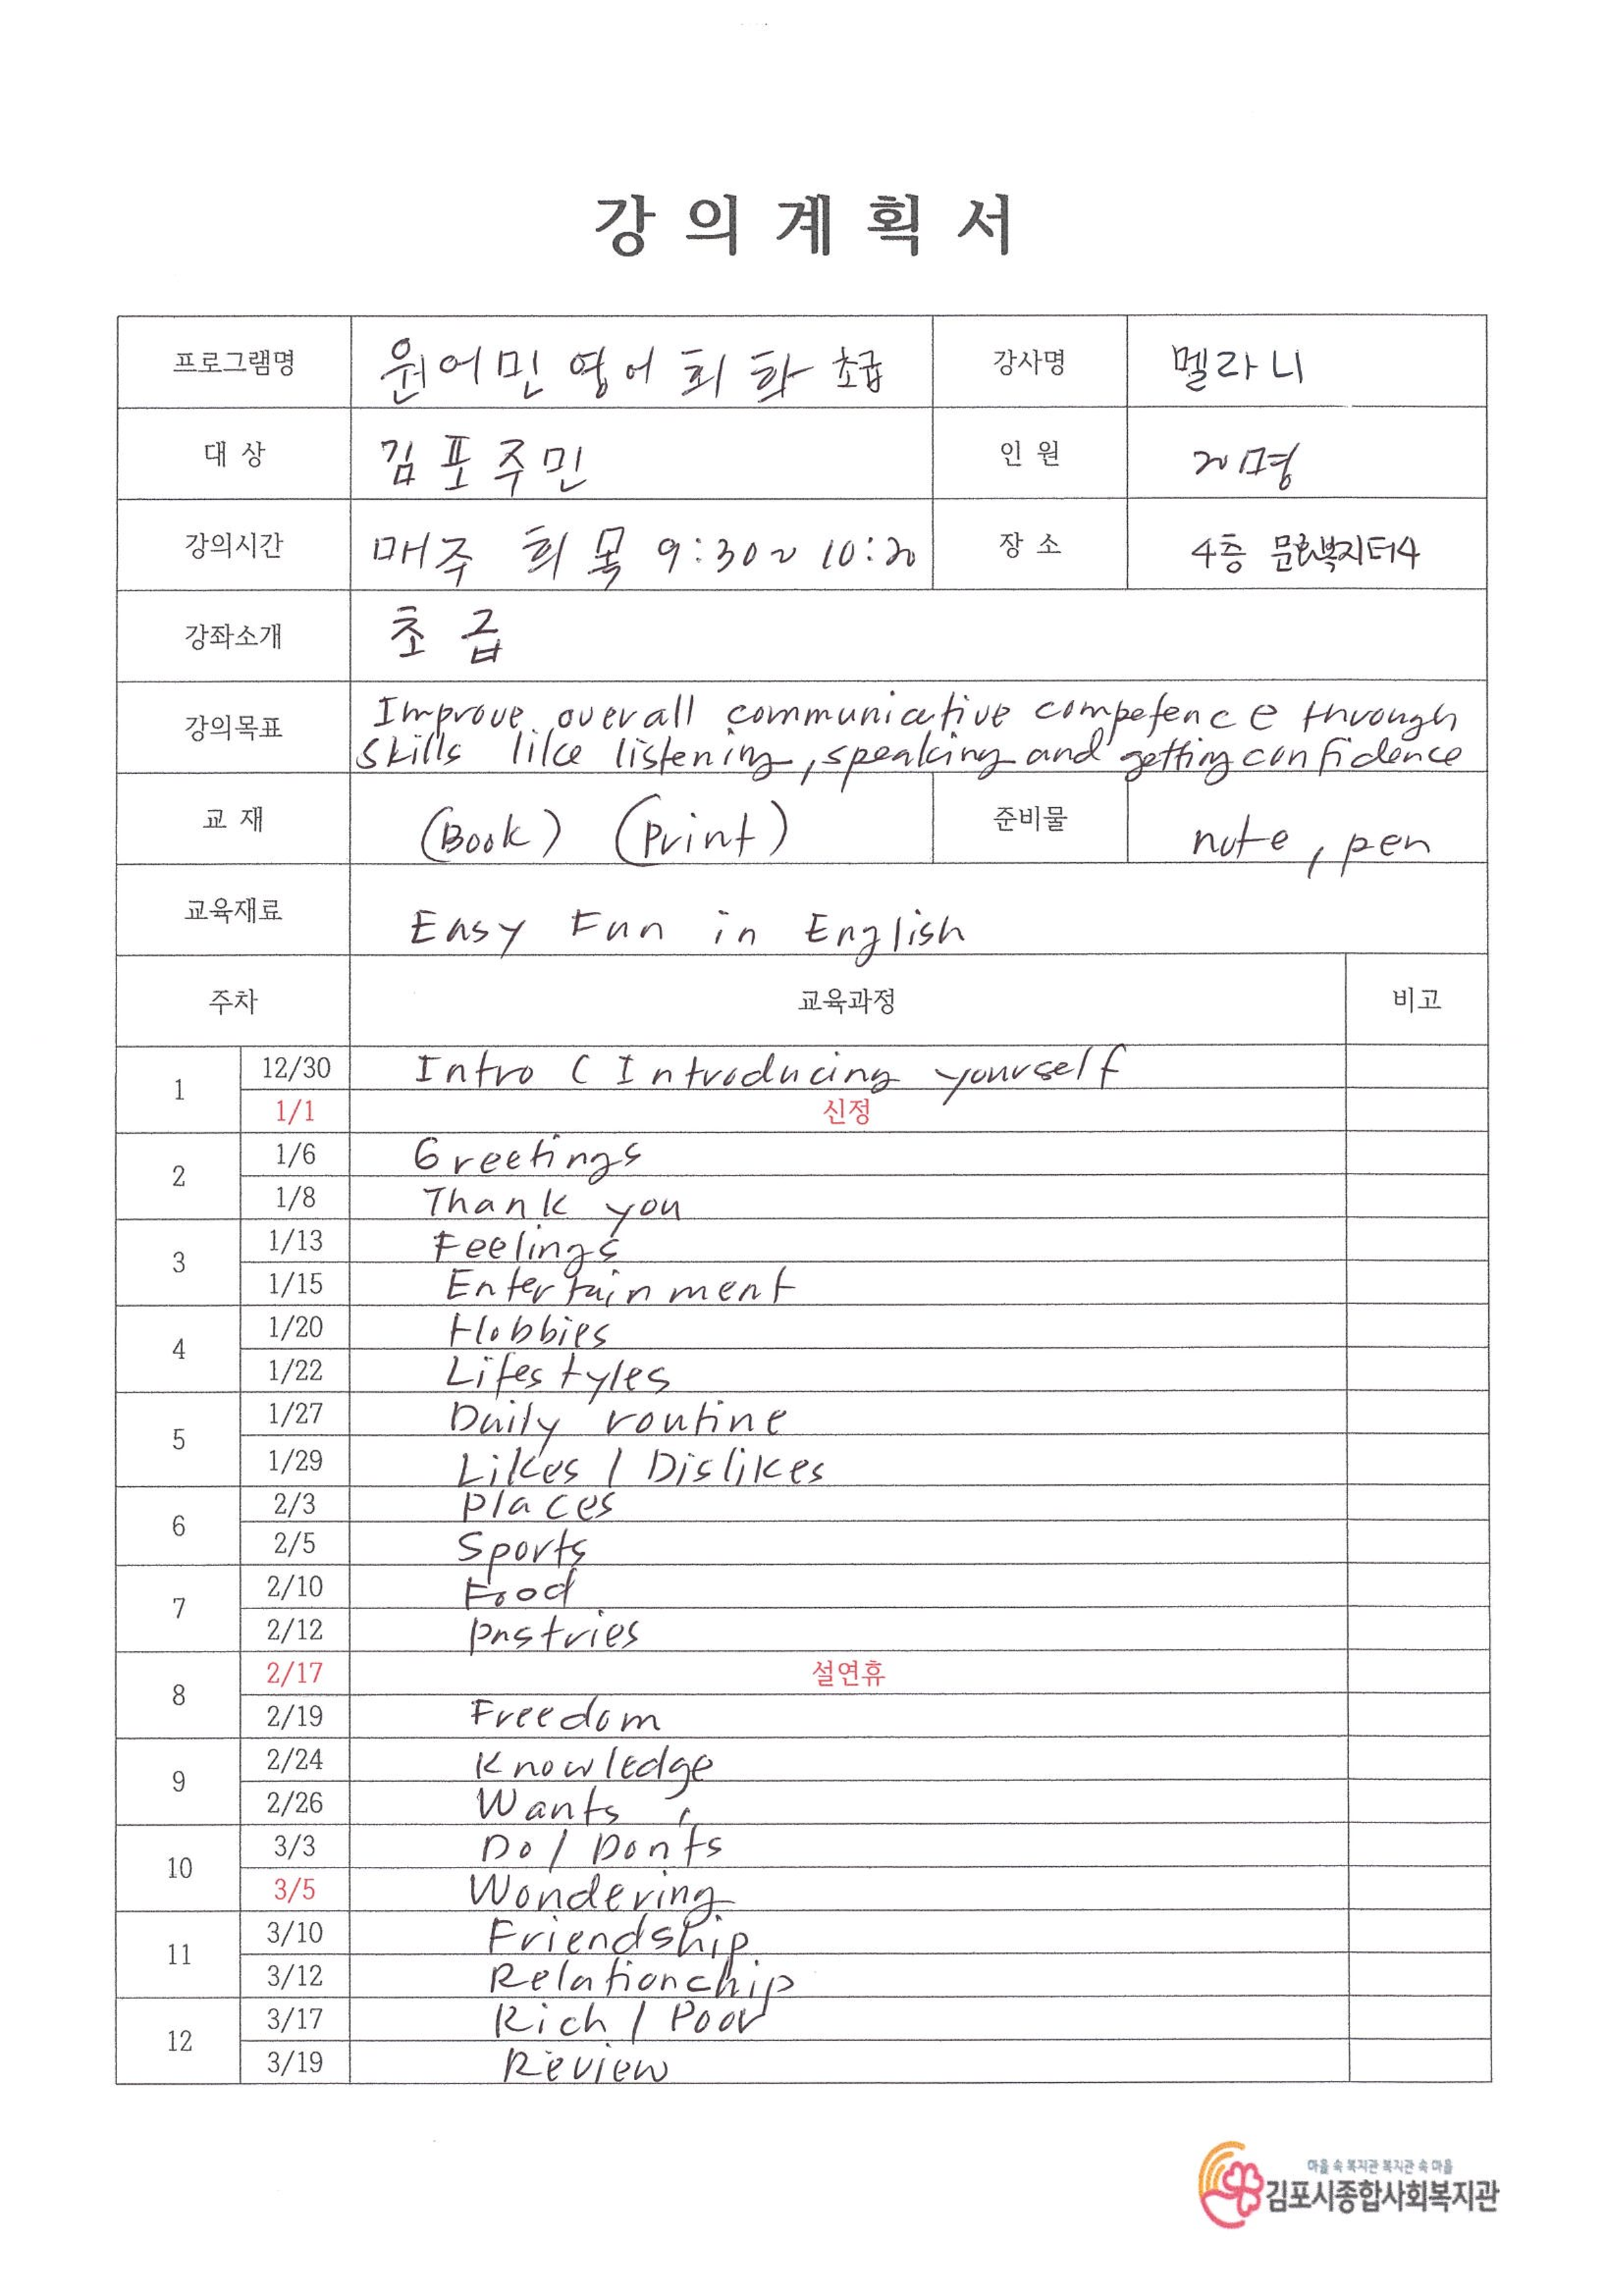 강 의 계 획 서
프로그램명 원어민 영어 회화 초급 강사명 멜라니
대 상 김포주민 인 원 20명
강의시간 매주 화 목 9:30~10:20 장 소 4층 문화복지터4
강좌소개 초급
강의목표 Improve overall communicative competence through
skills like listening, speaking and getting confidence
교 재 (Book) (Print) 준비물 note, pen
교육재료 Easy Fun in English
주차 교육과정 비고
1 12/30 Intro ( Introducing yourself
1/1 신정
2 1/6 Greetings
1/8 Thank you
3 1/13 Feelings
1/15 Entertainment
4 1/20 Hobbies
1/22 Lifestyles
5 1/27 Daily routine
1/29 Likes / Dislikes
6 2/3 Places
2/5 Sports
7 2/10 Food
2/12 Pastries
8 2/17 설연휴
2/19 Freedom
9 2/24 Knowledge
2/26 Wants
10 3/3 Do / Don'ts
3/5 Wondering
11 3/10 Friendship
3/12 Relationship
12 3/17 Rich / Poor
3/19 Review
마을 속 복지관 복지관 속 마을
김포시종합사회복지관